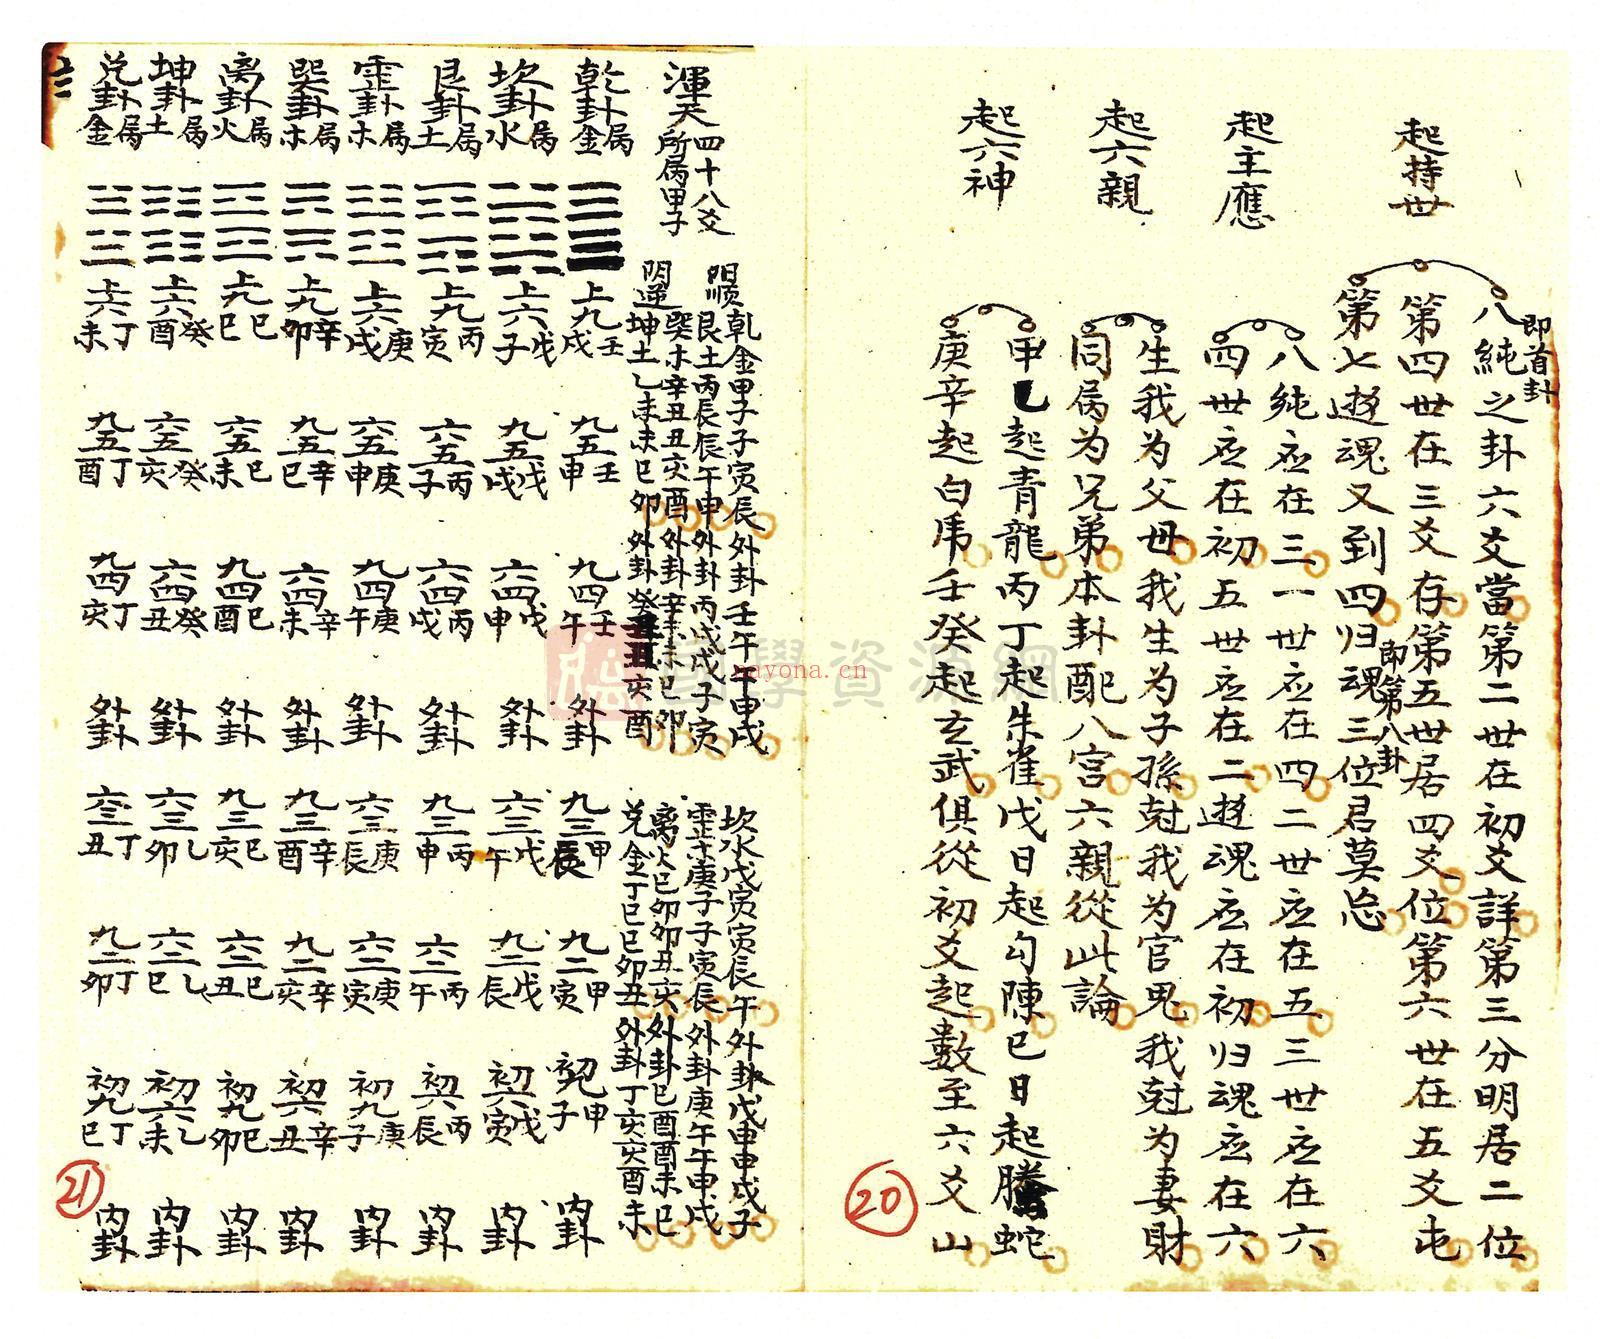 起持世
八純之卦六爻當第二世在初爻詳第三分明居二位
即首卦
第四世在三爻存第五世居四爻位第六世在五爻屯
第七遊魂又到四归魂三位君莫忘
即第八卦
起主應
八純应在三一世应在四二世应在五三世应在六
四世应在初五世应在二遊魂应在初归魂应在六
起六親
生我为父母我生为子孫尅我为官鬼我尅为妻財
同属为兄弟本卦配八宫六親從此論
起六神
甲乙起青龍丙丁起朱雀戊日起勾陳已日起騰蛇
庚辛起白虎壬癸起玄武俱從初爻起數至六爻山
20
渾天四十八爻所属甲子
陽順
乾金甲子子寅辰外卦壬午午申戌
艮土丙辰辰午申外卦丙戌戌子寅
陰逆
巽木辛丑丑亥酉外卦辛未未巳卯
坤土乙未未巳卯外卦癸丑丑亥酉
坎水戊寅寅辰午外卦戊申申戌子
震木庚子子寅辰外卦庚午午申戌
离火巳卯卯丑亥外卦巳酉酉未巳
兑金丁巳巳卯丑外卦丁亥亥酉未
乾卦属金 上九壬戌 九五壬申 九四壬午 外卦 九三甲辰 九二甲寅 初九甲子 内卦
坎卦属水 上六戊子 九五戊戌 六四戊申 外卦 六三戊午 九二戊辰 初六戊寅 内卦
艮卦属土 上九丙寅 六五丙子 六四丙戌 外卦 九三丙申 六二丙午 初六丙辰 内卦
震卦属木 上六庚戌 六五庚申 九四庚午 外卦 六三庚辰 六二庚寅 初九庚子 内卦
巽卦属木 上九辛卯 九五辛巳 六四辛未 外卦 九三辛酉 九二辛亥 初六辛丑 内卦
离卦属火 上九巳巳 六五巳未 九四巳酉 外卦 九三巳亥 六二巳丑 初九巳卯 内卦
坤卦属土 上六癸酉 六五癸亥 六四癸丑 外卦 六三乙卯 六二乙巳 初六乙未 内卦
兑卦属金 上六丁未 九五丁酉 九四丁亥 外卦 六三丁丑 九二丁卯 初九丁巳 内卦
21
國學資源網
nayona.cn